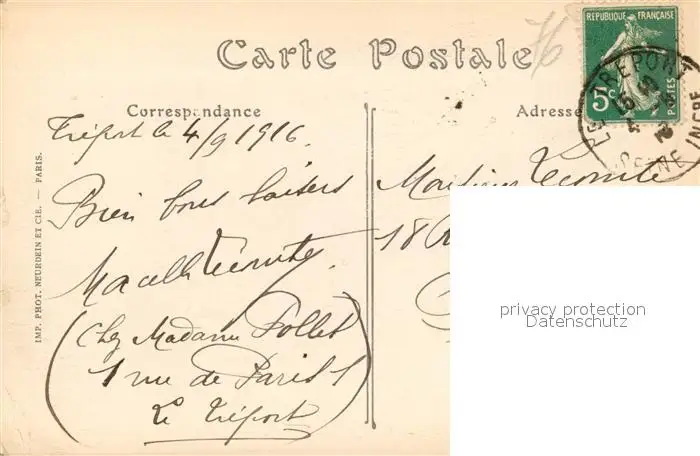 Carte Postale
76
RÉPUBLIQUE FRANÇAISE
5c
POSTES
LE TREPORT
SEINE INFRE
Correspondance
Adresse
Tréport le 4/9 1916
Bien bons baisers
Marcelle Lecomte
(Chez Madame Follet
1 rue de Paris 1
Le Tréport)
Lecomte
18
IMP. PHOT. NEURDEIN ET CIE. — PARIS.
privacy protection
Datenschutz